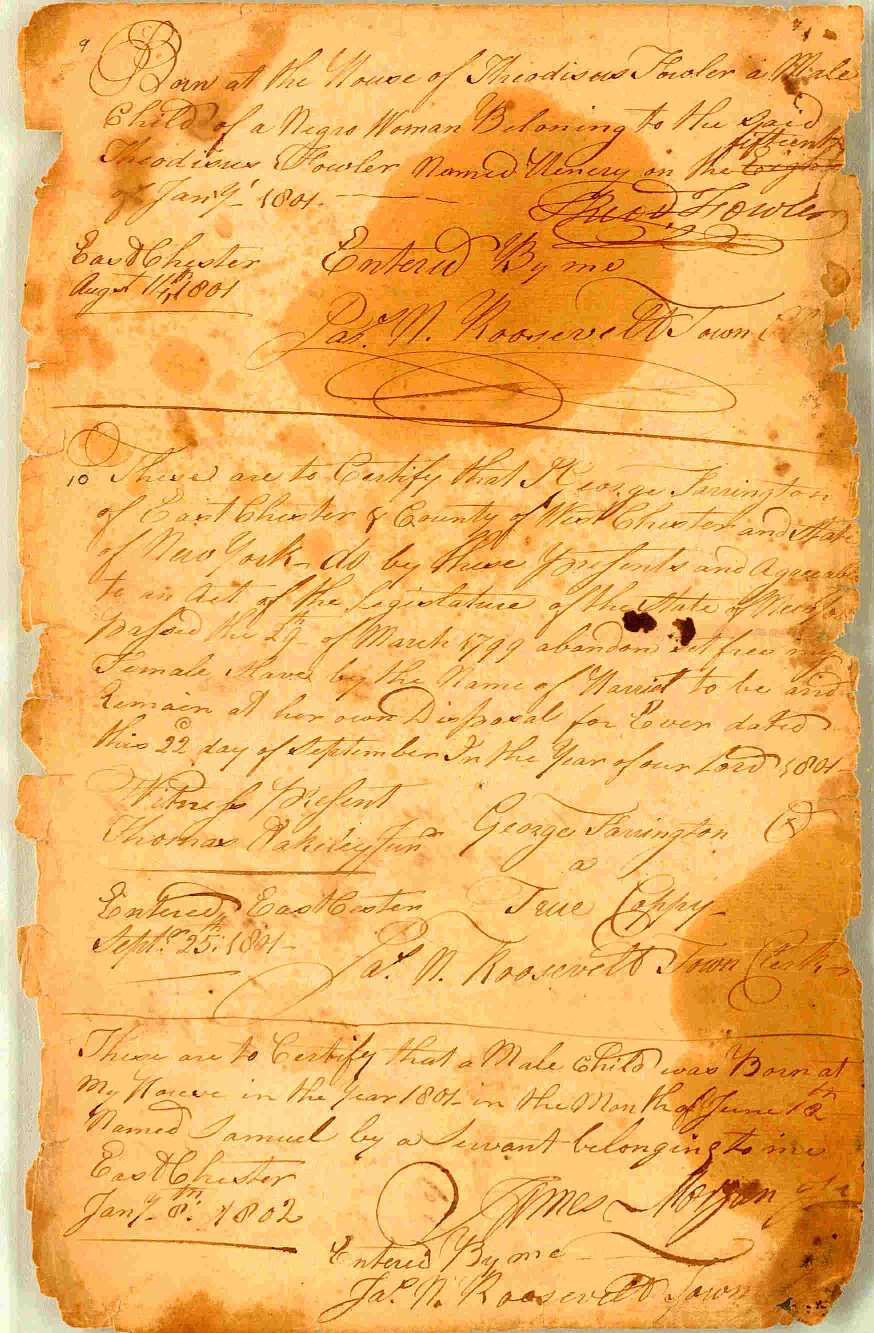 9
Born at the House of Theodisus Fowler a Male
Child of a Negro Woman Beloning to the Said
fifteenth
Theodisius Fowler Named Henery on the Eight
of Jany 1801.
Theod Fowler
East Chester Entered By me
Augst 14th 1801
Jas. N. Roosevelt Town
10 These are to Certify that I George Farrington
of East Chester & County of West Chester and State
of New York do by these presents and Agreeab
to an Act of the Legislature of the State of
passed the 29th of March 1799 abandon set free my
Female Slave by the Name of Harriet to be and
Remain at her own Disposal for Ever dated
this 22d day of September In the Year of our Lord 1801
Witness present
Thomas Oakley Junr George Farrington
a
Entered East Chester True Coppy
Septr. 25th 1801
Jas. N. Roosevelt Town Clerk
These are to Certify that a Male Child was Born at
My House in the Year 1801 in the Month of June 12th
Named Samuel by a Servant belonging to me
East Chester
Jany 8th 1802 James Morgan
Entered By me
Jas. N. Roosevelt Town